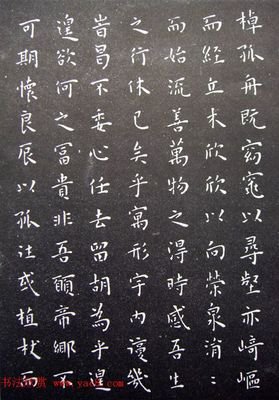 棹孤舟既窈窕以尋壑亦崎嶇
而經丘木欣欣以向榮泉涓〻
而始流善萬物之得時感吾生
之行休已矣乎寓形宇內復幾
旹曷不委心任去留胡為乎遑
遑欲何之富貴非吾願帝鄉不
可期懷良辰以孤往或植杖而